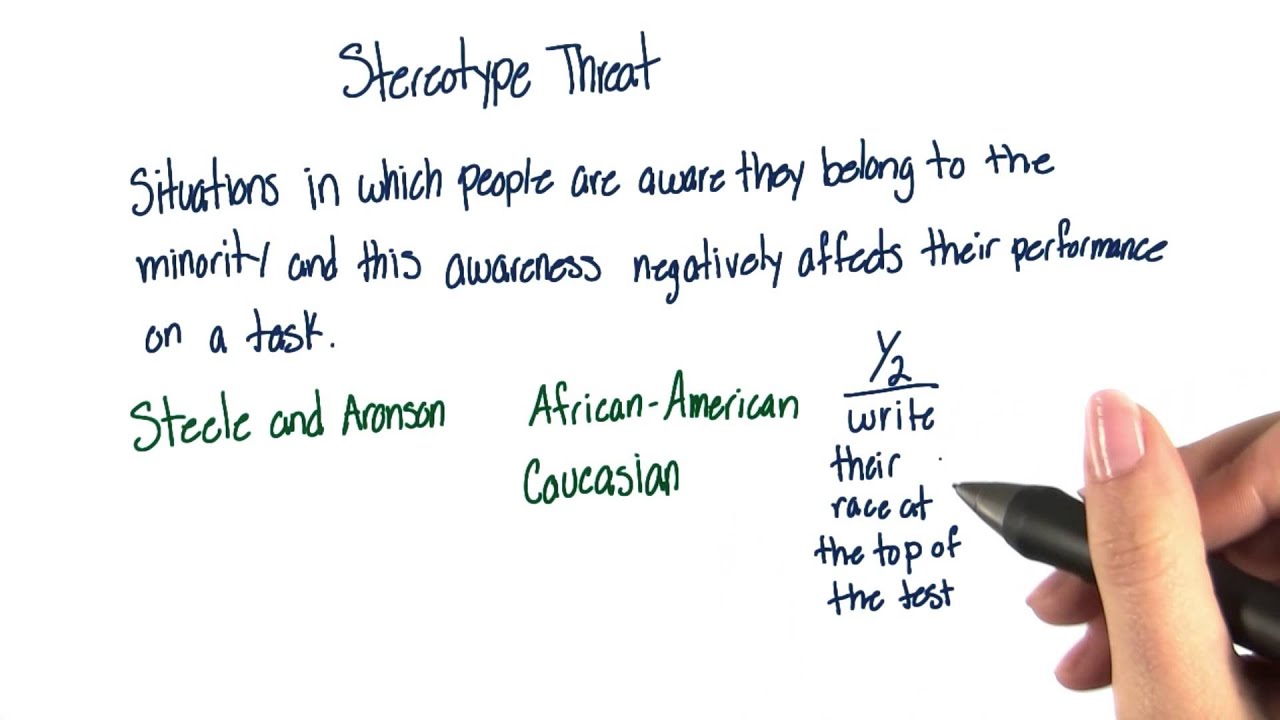 Stereotype Threat
Situations in which people are aware they belong to the
minority and this awareness negatively affects their performance
on a task.
Steele and Aronson
African-American
Caucasian
1/2
write
their
race at
the top of
the test